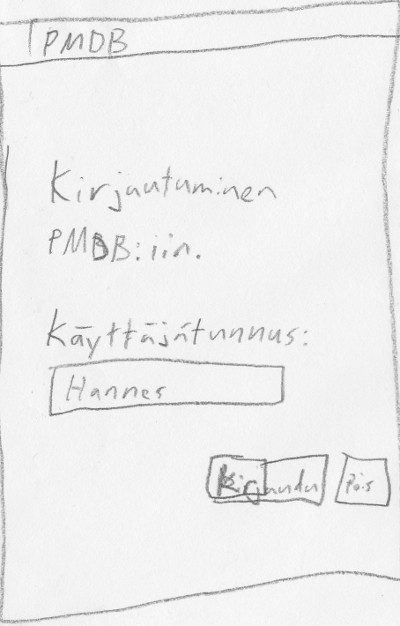 PMDB
Kirjautuminen
PMDB:iin.
Käyttäjätunnus:
Hannes
Kirjaudu Pois